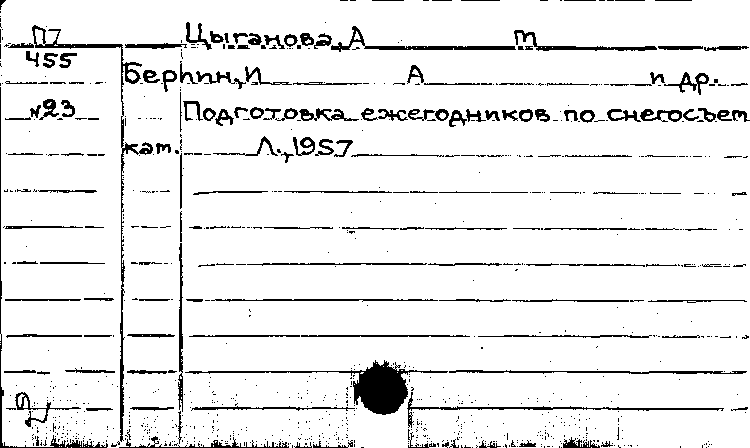 П7 Цыганова, А Т
455
Берлин, И А и др.
№23 Подготовка ежегодников по снегосъем
кам. Л., 1957